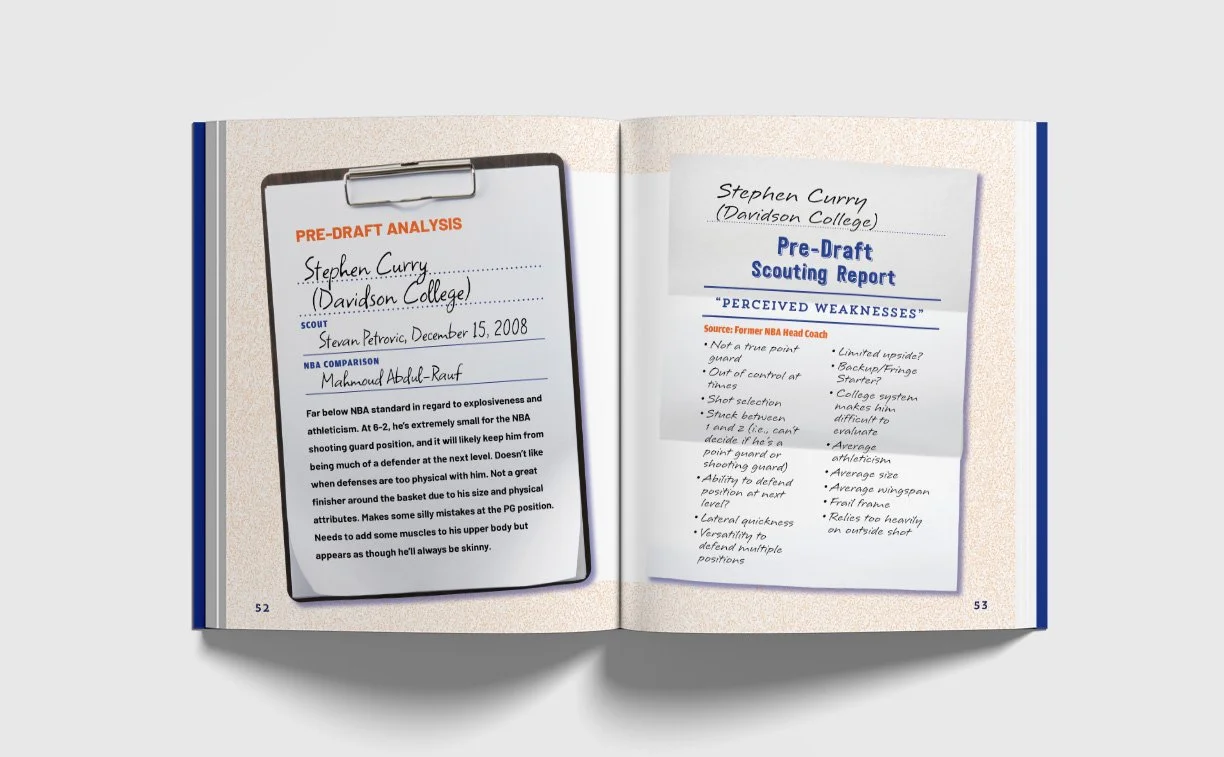 PRE-DRAFT ANALYSIS
Stephen Curry
(Davidson College)
SCOUT
Stevan Petrovic, December 15, 2008
NBA COMPARISON
Mahmoud Abdul-Rauf
Far below NBA standard in regard to explosiveness and
athleticism. At 6-2, he's extremely small for the NBA
shooting guard position, and it will likely keep him from
being much of a defender at the next level. Doesn't like
when defenses are too physical with him. Not a great
finisher around the basket due to his size and physical
attributes. Makes some silly mistakes at the PG position.
Needs to add some muscles to his upper body but
appears as though he'll always be skinny.
52
Stephen Curry
(Davidson College)
Pre-Draft
Scouting Report
"PERCEIVED WEAKNESSES"
Source: Former NBA Head Coach
• Not a true point
guard
• Out of control at
times
• Shot selection
• Stuck between
1 and 2 (i.e., can't
decide if he's a
point guard or
shooting guard)
• Ability to defend
position at next
level?
• Lateral quickness
• Versatility to
defend multiple
positions
• Limited upside?
• Backup/Fringe
Starter?
• College system
makes him
difficult to
evaluate
• Average
athleticism
• Average size
• Average wingspan
• Frail frame
• Relies too heavily
on outside shot
53